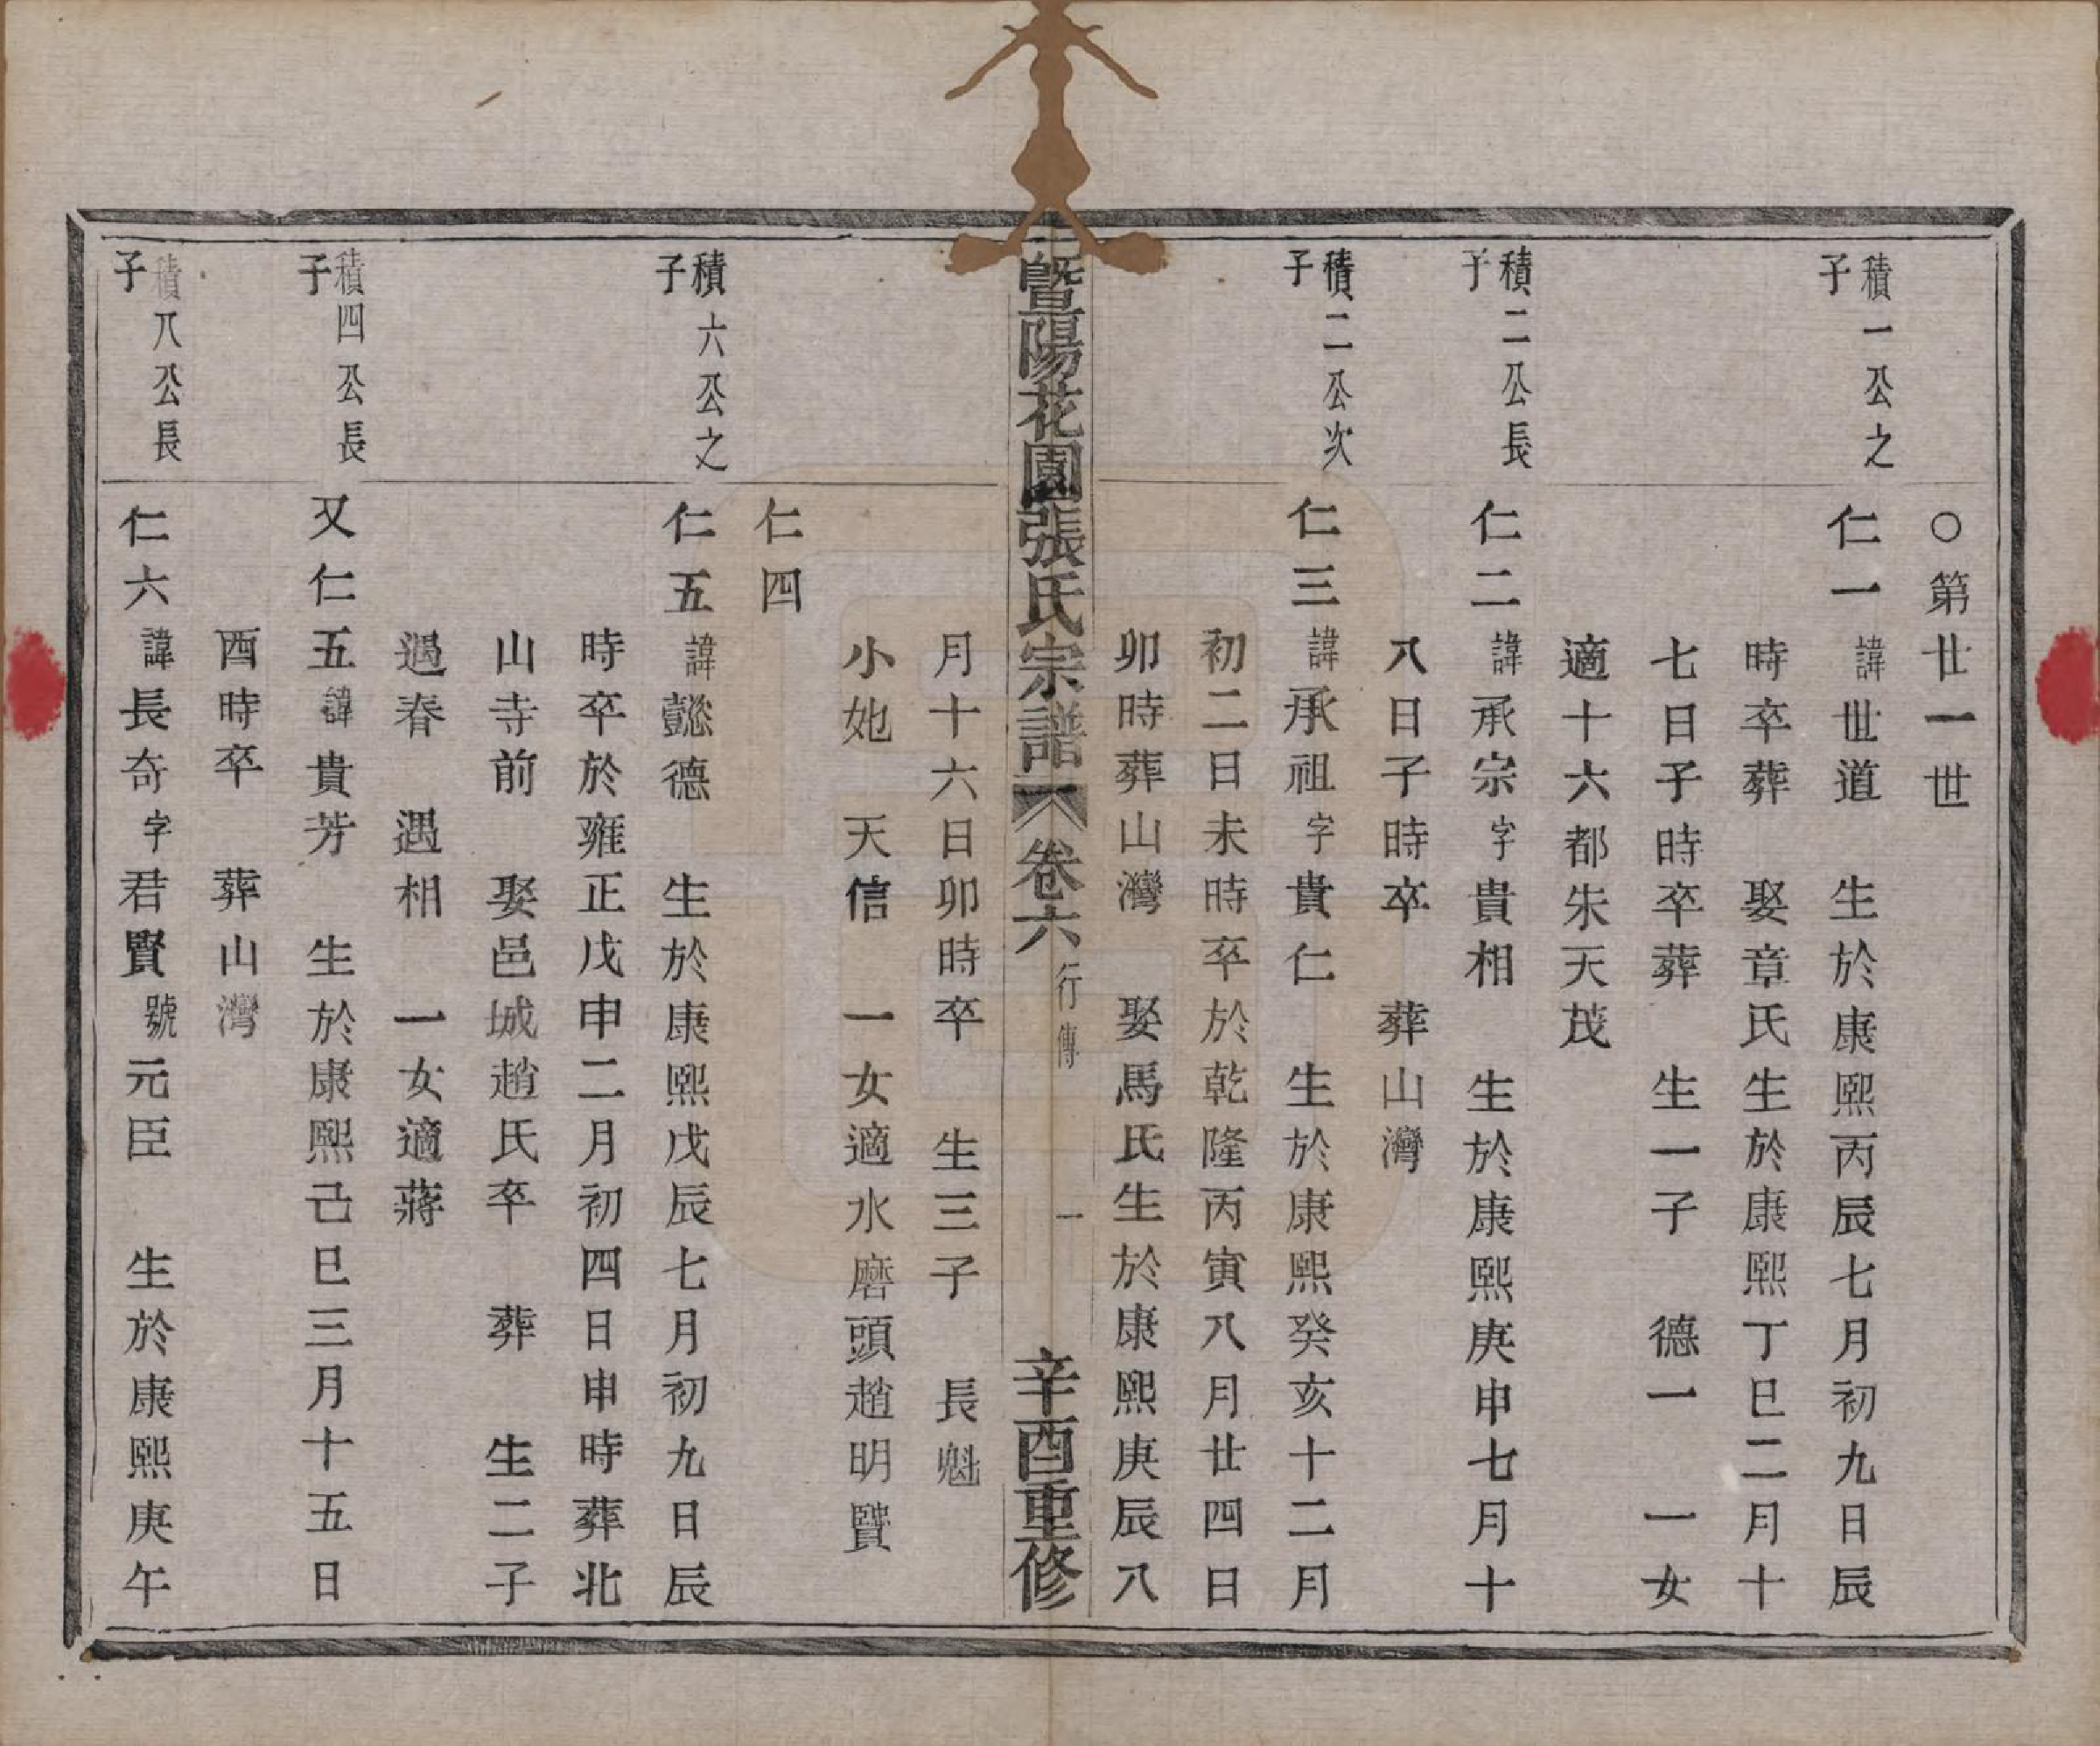 ○第廿一世
積一公之子
仁一諱世道　生於康熙丙辰七月初九日辰
時卒葬　娶章氏生於康熙丁巳二月十
七日子時卒葬　生一子　德一　一女
適十六都朱天茂
積二公長子
仁二諱承宗字貴相　生於康熙庚申七月十
八日子時卒　葬山灣
積二公次子
仁三諱承祖字貴仁　生於康熙癸亥十二月
初二日未時卒於乾隆丙寅八月廿四日
卯時葬山灣　娶馬氏生於康熙庚辰八
暨陽花園張氏宗譜　卷六　行傳　一　辛酉重修
月十六日卯時卒　生三子　長魁
小虵　天信　一女適水磨頭趙明贒
仁四
積六公之子
仁五諱懿德　生於康熙戊辰七月初九日辰
時卒於雍正戊申二月初四日申時葬北
山寺前　娶邑城趙氏卒　葬　生二子
遇春　遇相　一女適蔣
積四公長子
又仁五諱貴芳　生於康熙己巳三月十五日
酉時卒　葬山灣
積八公長子
仁六諱長奇字君賢號元臣　生於康熙庚午